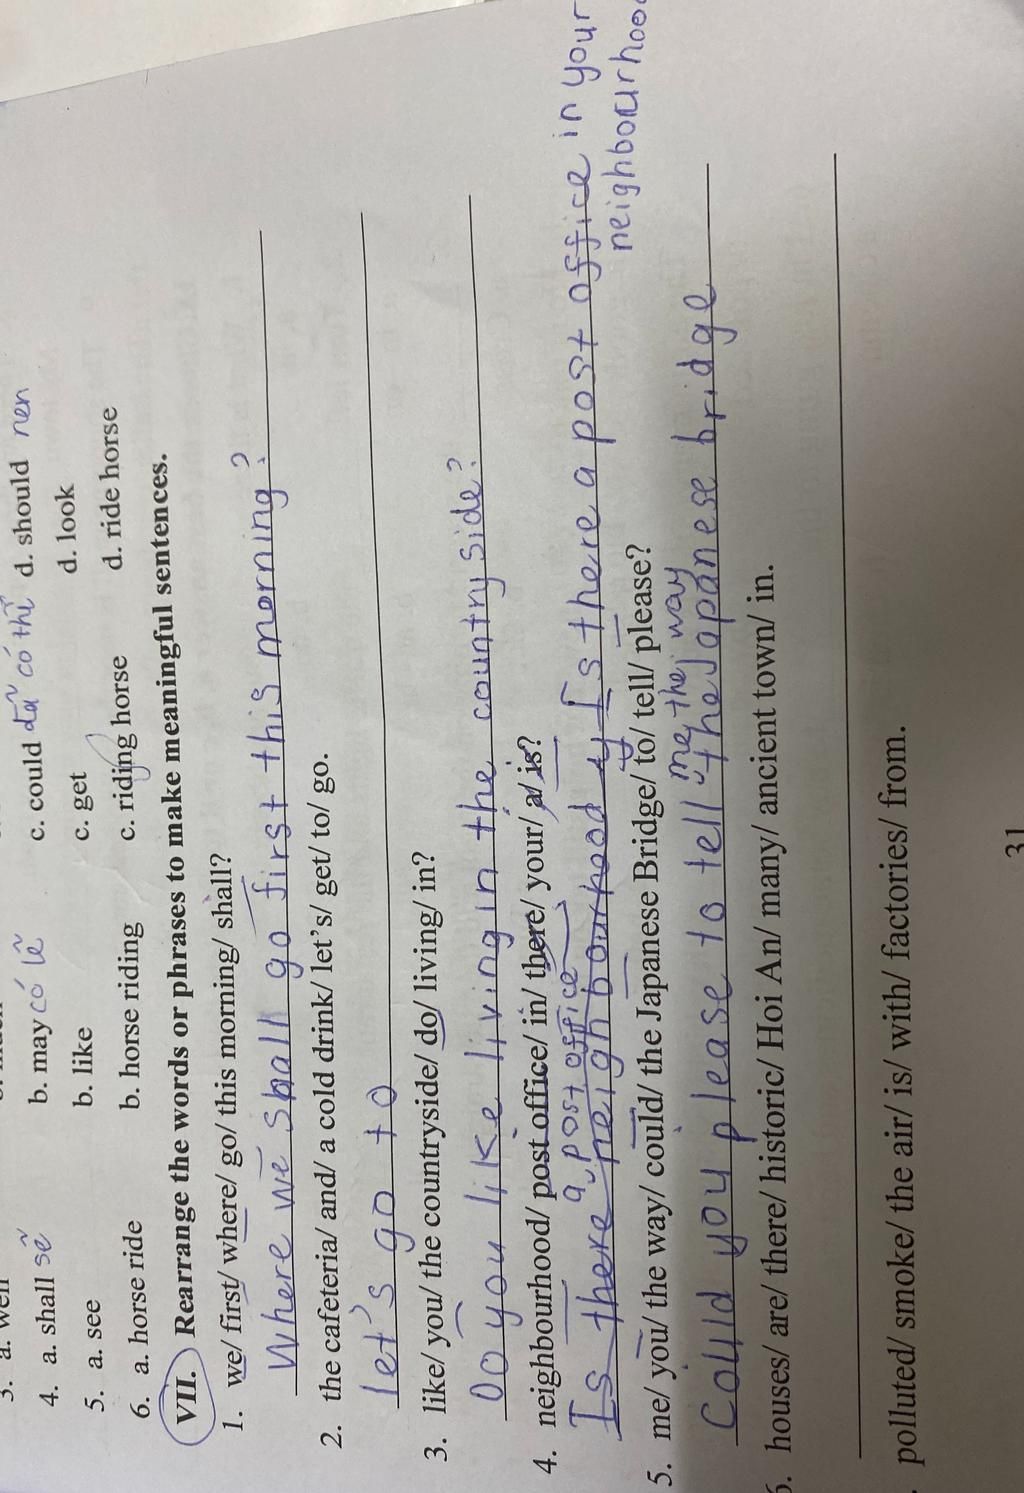 3. a. well
4. a. shall sẽ b. may có lẽ c. could đã có thể d. should nên
5. a. see b. like c. get d. look
6. a. horse ride b. horse riding c. riding horse d. ride horse
VII. Rearrange the words or phrases to make meaningful sentences.
1. we/ first/ where/ go/ this morning/ shall?
Where we shall go first this morning?
2. the cafeteria/ and/ a cold drink/ let's/ get/ to/ go.
let's go to
3. like/ you/ the countryside/ do/ living/ in?
Do you like living in the country side?
4. neighbourhood/ post office/ in/ there/ your/ a/ is?
a post office
Is there neighbourhood y Is there a post office in your
neighbourhood
5. me/ you/ the way/ could/ the Japanese Bridge/ to/ tell/ please?
me the way
Could you please to tell the Japanese bridge
6. houses/ are/ there/ historic/ Hoi An/ many/ ancient town/ in.
polluted/ smoke/ the air/ is/ with/ factories/ from.
31